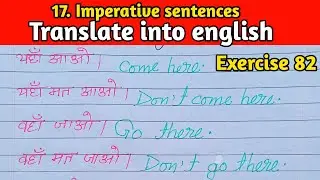 17. Imperative sentences
Translate into english
Exercise 82
यहाँ आओ। Come here.
यहाँ मत आओ। Don't come here.
वहाँ जाओ। Go there.
वहाँ मत जाओ। Don't go there.